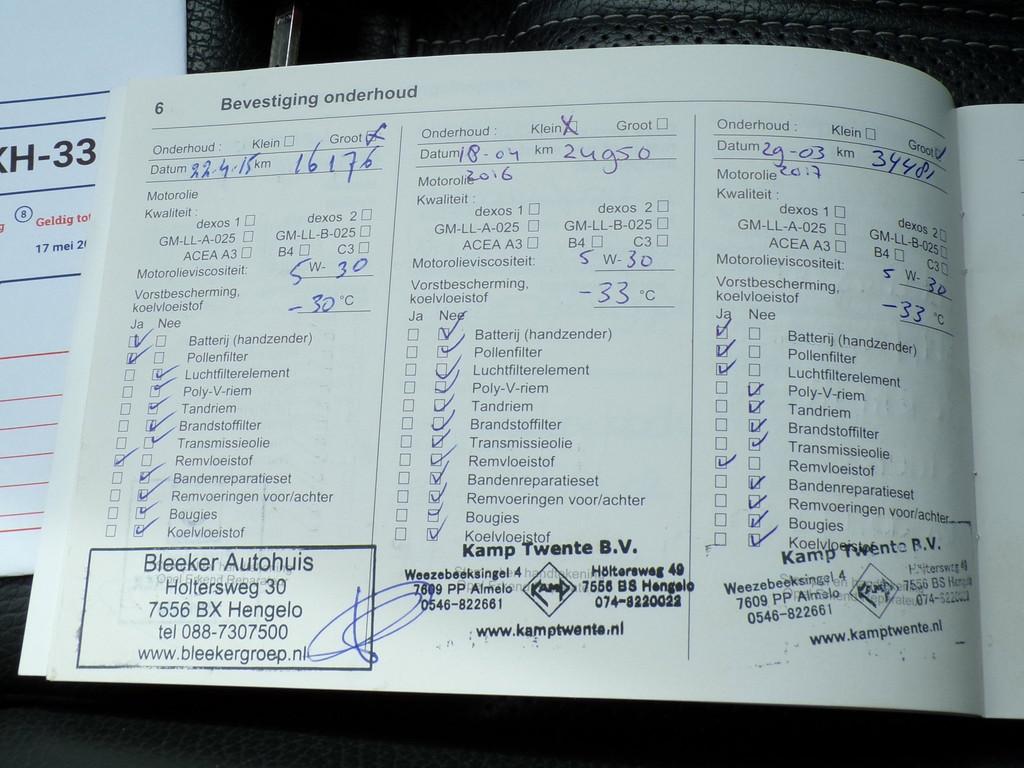 KH-33
8 Geldig tot
17 mei 2
6 Bevestiging onderhoud
Onderhoud : Klein Groot
Datum 22.4.15 km 16176
Motorolie
Kwaliteit :
dexos 1 dexos 2
GM-LL-A-025 GM-LL-B-025
ACEA A3 B4 C3
Motorolieviscositeit: 5 W- 30
Vorstbescherming,
koelvloeistof -30 °C
Ja Nee
Batterij (handzender)
Pollenfilter
Luchtfilterelement
Poly-V-riem
Tandriem
Brandstoffilter
Transmissieolie
Remvloeistof
Bandenreparatieset
Remvoeringen voor/achter
Bougies
Koelvloeistof
Bleeker Autohuis
Holtersweg 30
7556 BX Hengelo
tel 088-7307500
www.bleekergroep.nl
Onderhoud : Klein Groot
Datum 18-04 km 24950
2016
Motorolie
Kwaliteit :
dexos 1 dexos 2
GM-LL-A-025 GM-LL-B-025
ACEA A3 B4 C3
Motorolieviscositeit: 5 W- 30
Vorstbescherming,
koelvloeistof -33 °C
Ja Nee
Batterij (handzender)
Pollenfilter
Luchtfilterelement
Poly-V-riem
Tandriem
Brandstoffilter
Transmissieolie
Remvloeistof
Bandenreparatieset
Remvoeringen voor/achter
Bougies
Koelvloeistof
Kamp Twente B.V.
Weezebeeksingel 4 Höltersweg 49
7609 PP Almelo KAMP 7556 BS Hengelo
0546-822661 074-8220022
www.kamptwente.nl
Onderhoud : Klein Groot
Datum 29-03 km 34481
2017
Motorolie
Kwaliteit :
dexos 1 dexos 2
GM-LL-A-025 GM-LL-B-025
ACEA A3 B4 C3
Motorolieviscositeit: 5 W- 30
Vorstbescherming,
koelvloeistof -33 °C
Ja Nee
Batterij (handzender)
Pollenfilter
Luchtfilterelement
Poly-V-riem
Tandriem
Brandstoffilter
Transmissieolie
Remvloeistof
Bandenreparatieset
Remvoeringen voor/achter
Bougies
Koelvloeistof
Kamp Twente B.V.
Weezebeeksingel 4 Höltersweg 49
7609 PP Almelo KAMP 7556 BS Hengelo
0546-822661 074-8220022
www.kamptwente.nl